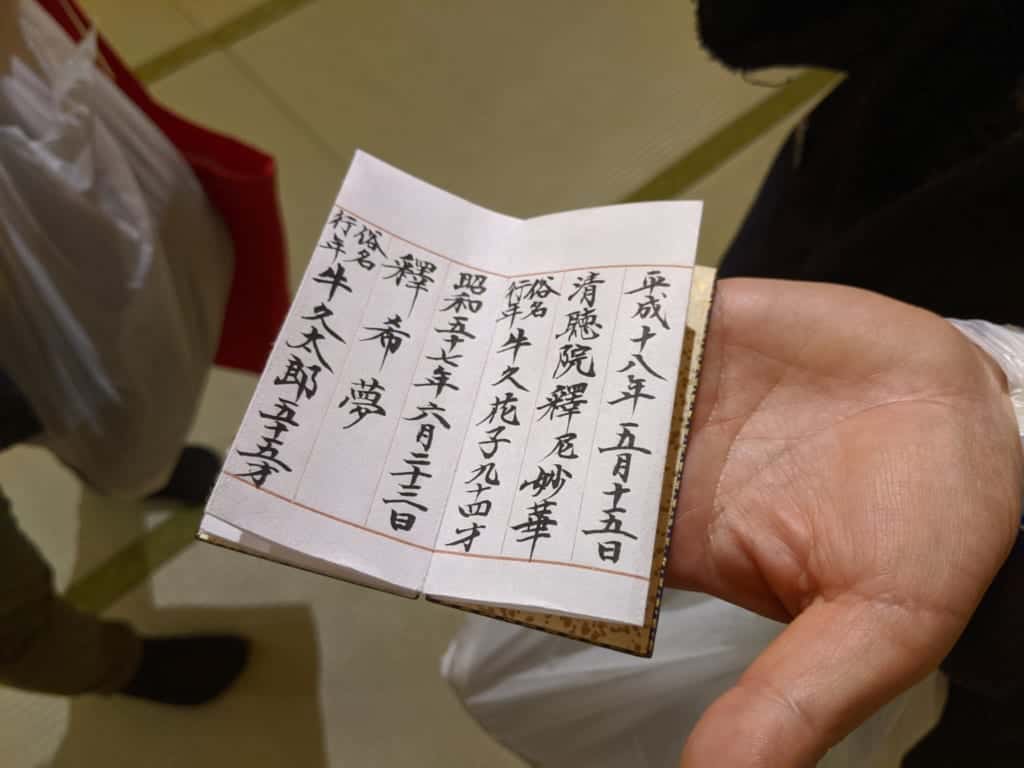 平成十八年 五月十五日
清聴院釋尼妙華
俗名
行年 牛久花子 九十四才
昭和五十七年 六月二十二日
釋希夢
俗名
行年 牛久太郎 五十五才